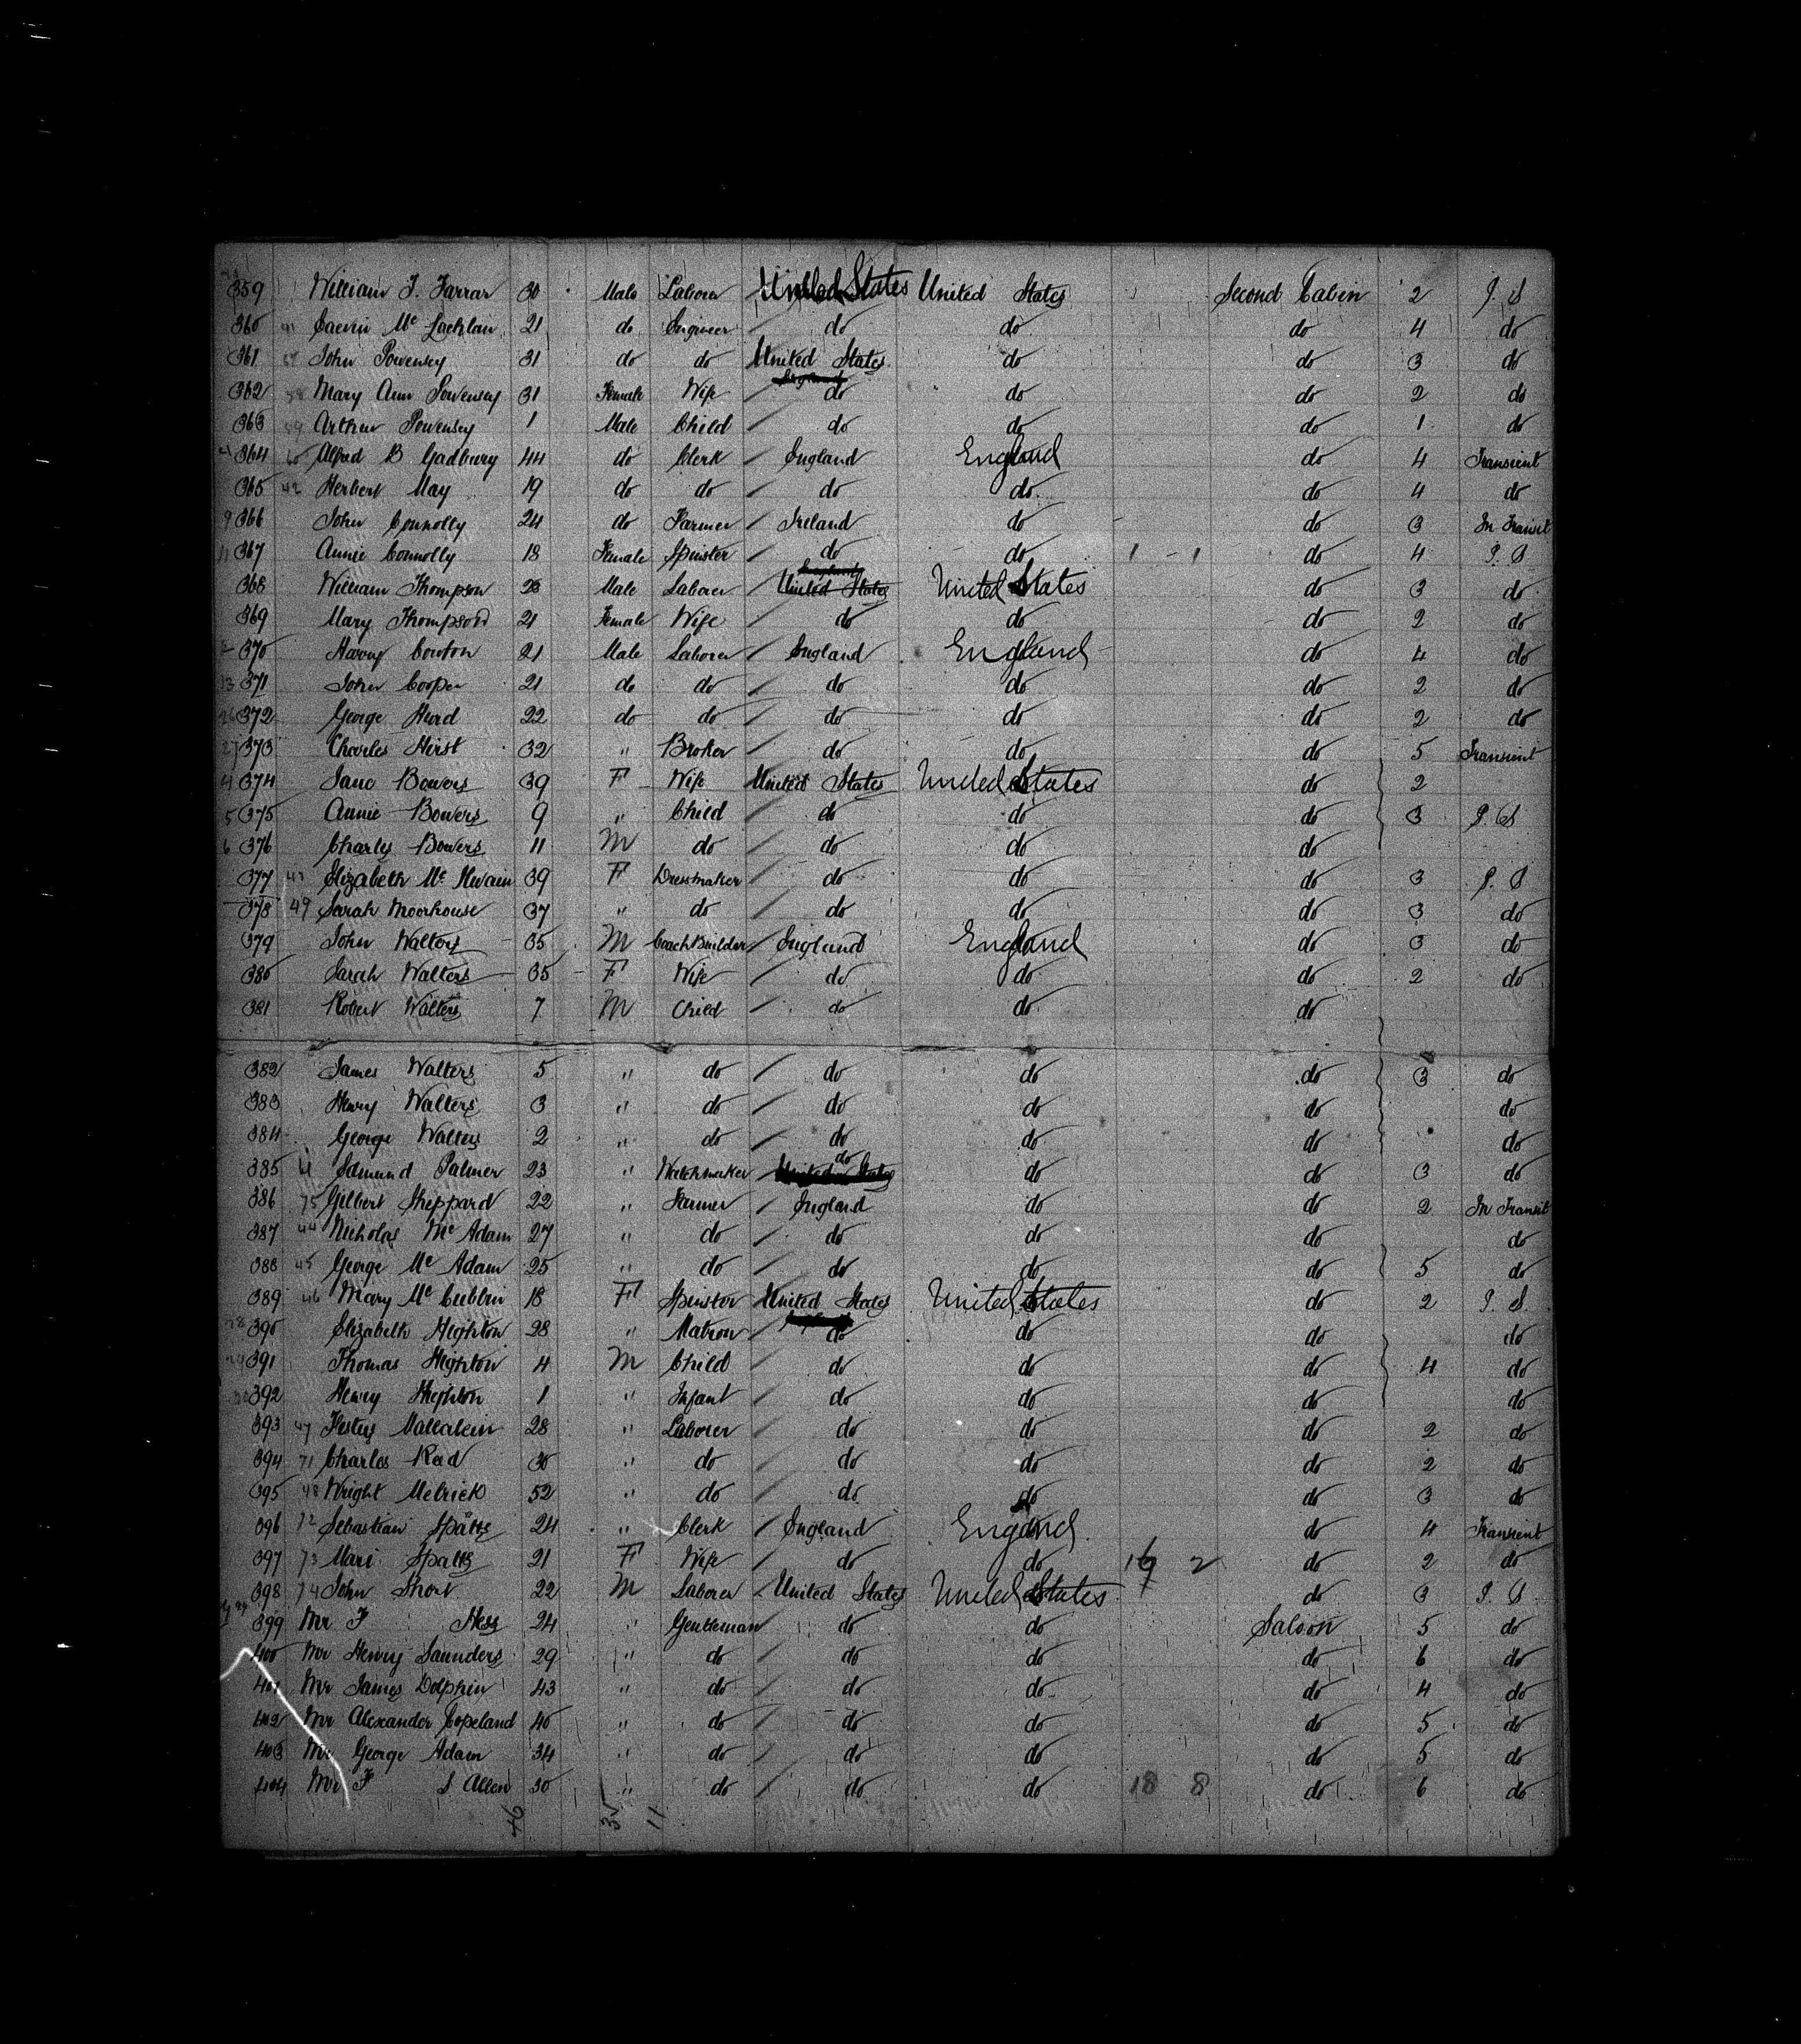 359 William J. Farrar 30 Male Laborer United States United States Second Cabin 2 P. S
360 Mc Lachlan 21 do Engineer do do do 4 do
361 John Povensey 31 do do United States do do 3 do
362 Mary Ann Povensey 31 Female Wife do do do 2 do
363 59 Arthur Povensey 1 Male Child do do do 1 do
364 60 Alfred B Gadbury 44 do Clerk England England do 4 Transient
365 42 Herbert May 19 do do do do do 4 do
366 John Connolly 24 do Farmer Ireland do do 3 In Transit
367 Annie Connolly 18 Female Spinster do do 1 - 1 do 4 P. S
England
368 William Thompson 23 Male Laborer United States United States do 3 do
369 Mary Thompson 21 Female Wife do do do 2 do
370 Harry Cowton 21 Male Laborer England England do 4 do
371 John Cooper 21 do do do do do 2 do
372 George Hurd 22 do do do do do 2 do
373 Charles Hirst 32 " Broker do do do 5 Transient
4 374 Jane Bowers 39 F Wife United States United States do 2
5 375 Annie Bowers 9 " Child do do do 3 P. S
6 376 Charles Bowers 11 M do do do do
377 43 Elizabeth Mc Ilwain 39 F Dressmaker do do do 3 P. S
378 49 Sarah Moorhouse 37 " do do do do 3 do
379 John Walters 35 M Coach Builder England England do 3 do
380 Sarah Walters 35 F Wife do do do 2 do
381 Robert Walters 7 M Child do do do
382 James Walters 5 " do do do do 3 do
383 Henry Walters 3 " do do do do do
384 George Walters 2 " do do do do do
385 Edmund Palmer 23 " Watchmaker do United States do do 3 do
386 75 Gilbert Sheppard 22 " Farmer England do do 2 In Transit
387 44 Nicholas Mc Adam 27 " do do do do do
388 45 George Mc Adam 25 " do do do do 5 do
389 46 Mary Mc Cubbin 18 F Spinster United States United States do 2 P. S.
390 Elizabeth Heighton 28 " Matron do do do do
391 Thomas Heighton 4 M Child do do do 4 do
392 Henry Heighton 1 " Infant do do do do
393 47 28 " Laborer do do do 2 do
394 71 Charles Read 30 " do do do do 2 do
395 48 Wright Melrick 52 " do do do do 3 do
396 72 Sebastian Spätts 24 " Clerk England England do 4 Transient
397 73 Mari Spatts 21 F Wife do do 2 do 2 do
398 74 John Short 22 M Laborer United States United States do 3 P. S
399 Mr F Hess 24 " Gentleman do do Saloon 5 do
400 Mr Henry Saunders 29 " do do do do 6 do
401 Mr James Dolphin 43 " do do do do 4 do
402 Mr Alexander Copeland 40 " do do do do 5 do
403 Mr George Adam 34 " do do do do 5 do
404 Mr F S Allen 30 " do do do 18 8 do 6 do
46 35 11